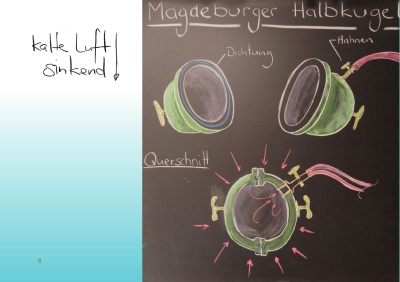 kalte Luft
sinkend
Magdeburger Halbkugel
Dichtung
Hahnen
Querschnitt
8